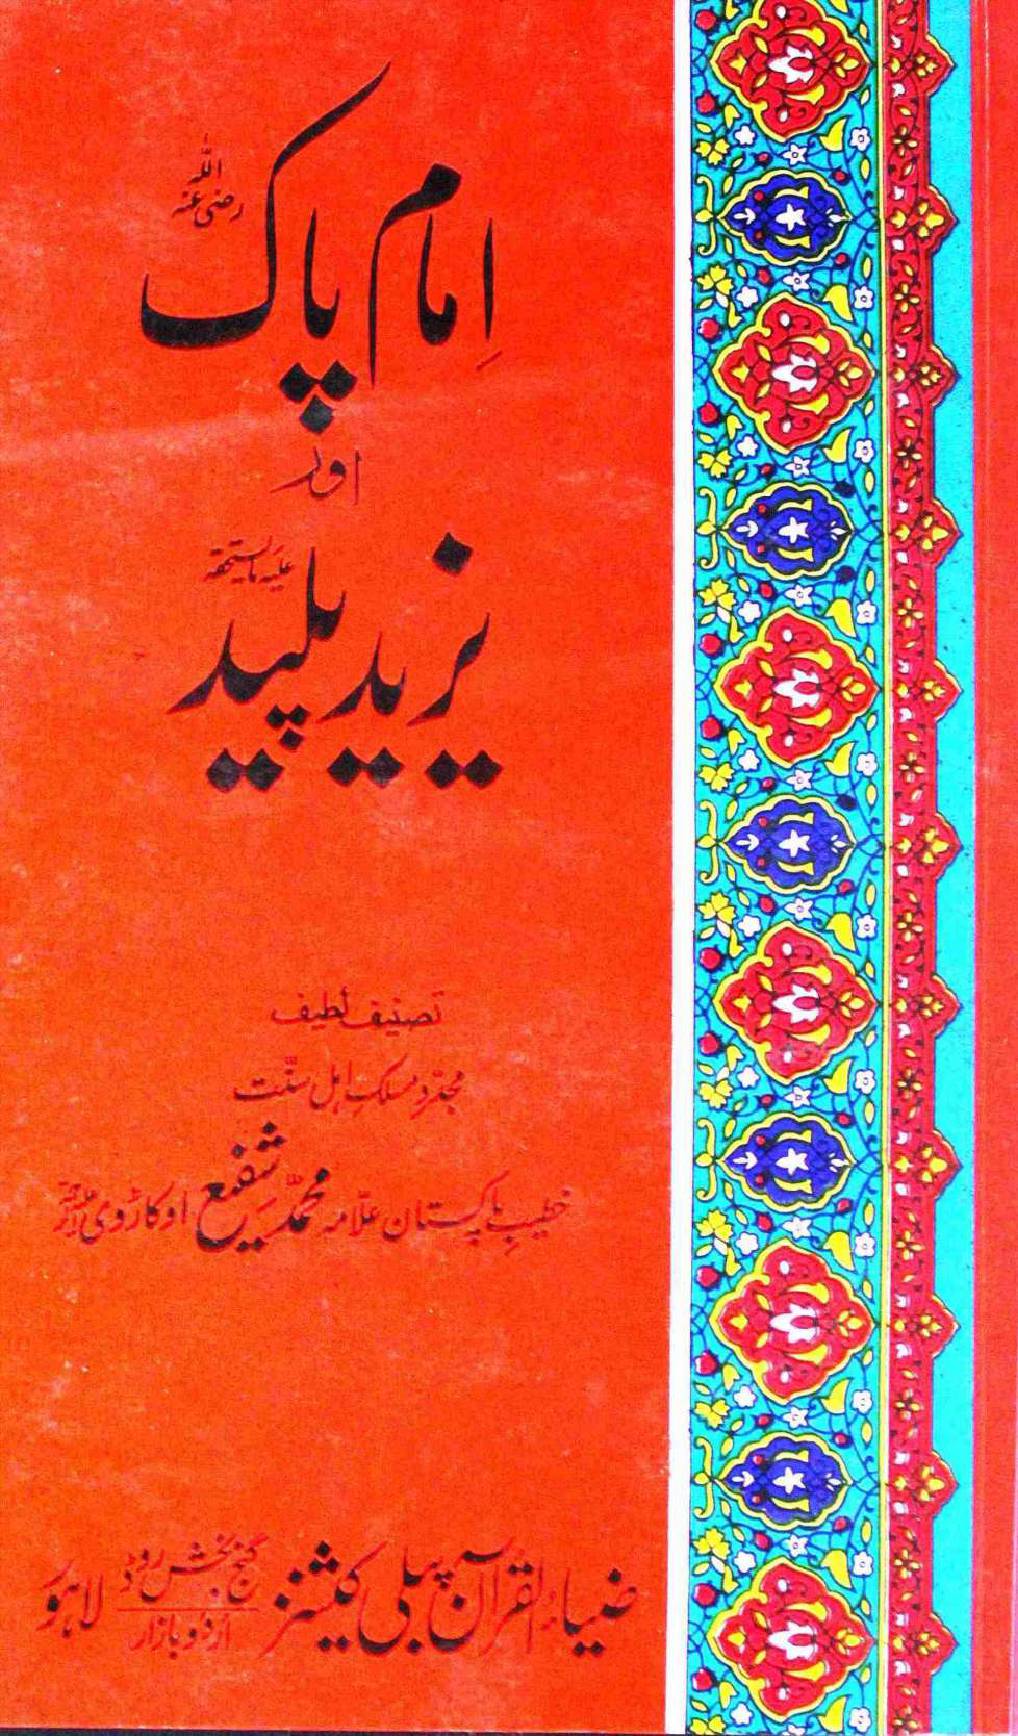 امام پاک رضی اللہ عنہ
اور
یزید پلید علیہ ما یستحقہ
تصنیف لطیف
مجدّدِ مسلکِ اہل سنّت
خطیبِ پاکستان علّامہ محمّد شفیع اوکاڑوی
ضیاءُ القرآن پبلی کیشنز گنج بخش روڈ اردو بازار لاہور